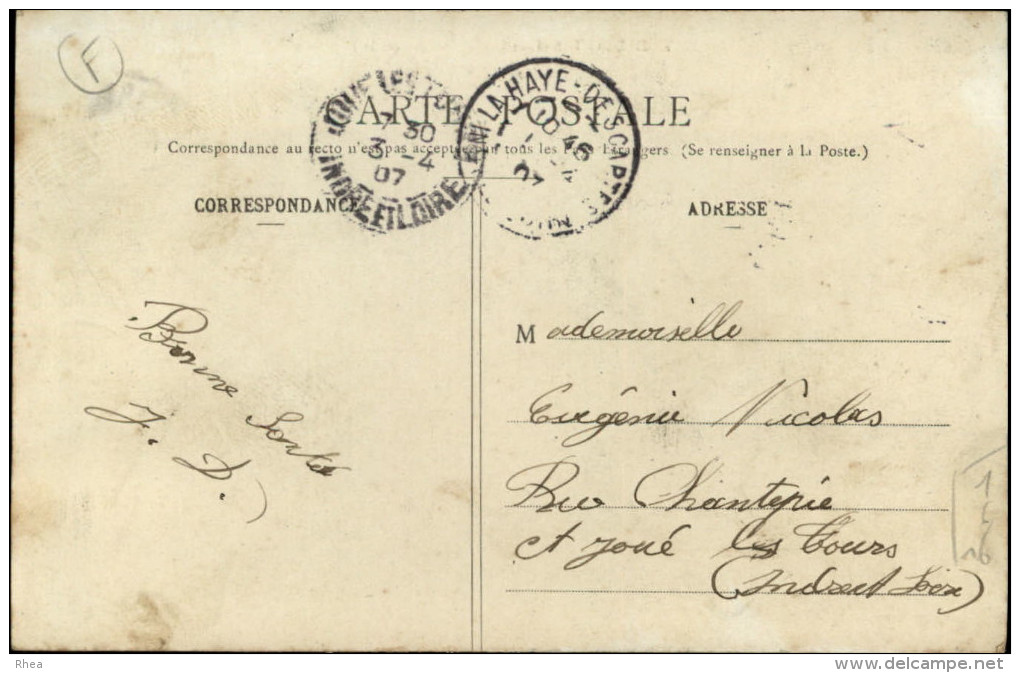 F
CARTE POSTALE
Correspondance au recto n'est pas acceptée par tous les Pays Etrangers (Se renseigner à la Poste.)
JOUE LES TOURS
7 30
3 - 4
07
INDRE ET LOIRE
LA HAYE-DESCARTES
CORRESPONDANCE
ADRESSE
Bonne Santé
J. D.
Mademoiselle
Eugénie Nicolas
Rue Chantepie
A Joué les Tours
(Indre et Loire)
Rhea
www.delcampe.net